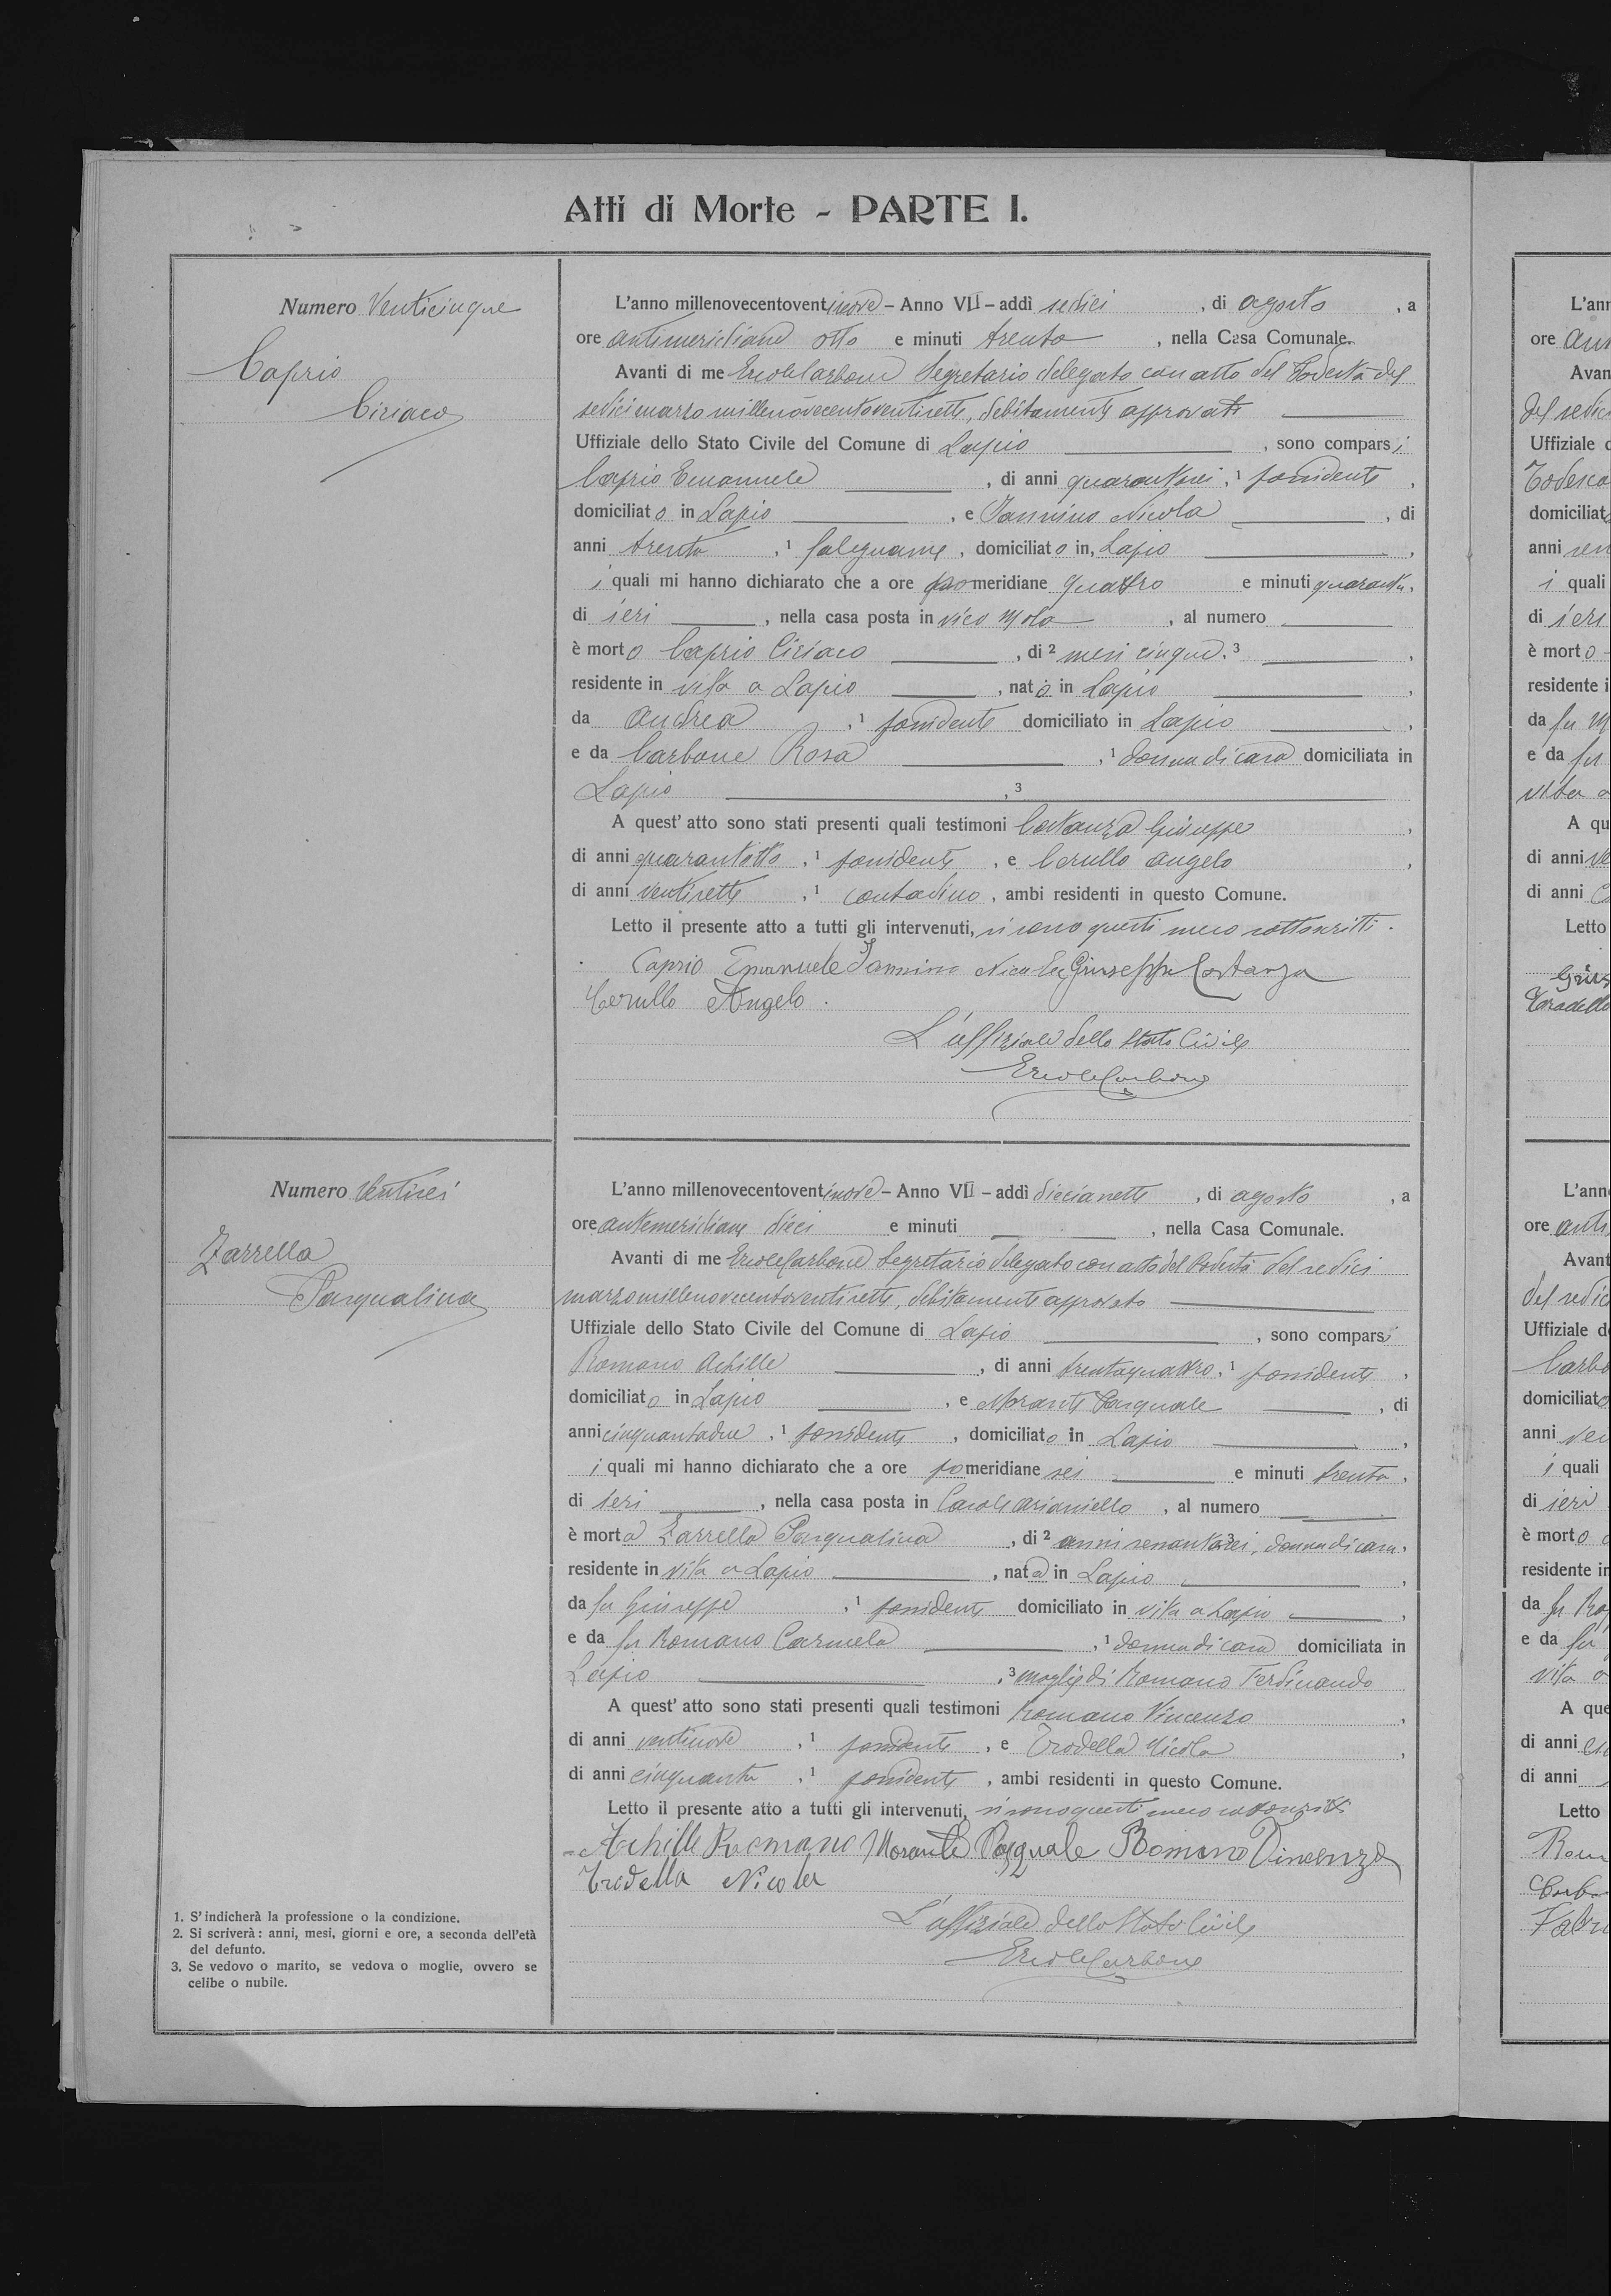 Atti di Morte - PARTE I.
Numero Venticinque
Caprio
Ciriaco
L'anno millenovecentoventinove - Anno VII - addì sedici, di agosto, a
ore antimeridiane otto e minuti trenta, nella Casa Comunale.
Avanti di me Ercole Carbone Segretario delegato con atto del Podestà del
sedici marzo millenovecentoventisette, debitamente approvato
Uffiziale dello Stato Civile del Comune di Lapio, sono comparsi
Caprio Emanuele, di anni quarantasei,1 possidente,
domiciliato in Lapio, e Iannino Nicola, di
anni trenta,1 falegname, domiciliato in Lapio,
i quali mi hanno dichiarato che a ore pomeridiane quattro e minuti quaranta,
di ieri, nella casa posta in vico Mola, al numero
è morto Caprio Ciriaco, di2 mesi cinque,3
residente in vita a Lapio, nato in Lapio,
da Andrea,1 possidente domiciliato in Lapio,
e da Carbone Rosa,1 donna di casa domiciliata in
Lapio,3
A quest'atto sono stati presenti quali testimoni Costanza Giuseppe,
di anni quarantotto,1 possidente, e Cerullo Angelo,
di anni ventisette,1 contadino, ambi residenti in questo Comune.
Letto il presente atto a tutti gli intervenuti, si sono questi meco sottoscritti.
Caprio Emanuele Iannino Nicola Giuseppe Costanza
Cerullo Angelo.
L'uffiziale dello Stato Civile
Ercole Carbone
Numero Ventisei
Zarrella
Pasqualina
L'anno millenovecentoventinove - Anno VII - addì diecianette, di agosto, a
ore antemeridiane dieci e minuti, nella Casa Comunale.
Avanti di me Ercole Carbone Segretario delegato con atto del Podestà del sedici
marzo millenovecentoventisette, debitamente approvato
Uffiziale dello Stato Civile del Comune di Lapio, sono comparsi
Romano Achille, di anni trentaquattro,1 possidente,
domiciliato in Lapio, e Morante Pasquale, di
anni cinquantadue,1 possidente, domiciliato in Lapio,
i quali mi hanno dichiarato che a ore pomeridiane sei e minuti trenta,
di ieri, nella casa posta in Casale Arianiello, al numero
è morta Zarrella Pasqualina, di2 anni sessantasei, donna di casa,3
residente in vita a Lapio, nata in Lapio,
da fu Giuseppe,1 possidente domiciliato in vita a Lapio,
e da fu Romano Carmela,1 donna di casa domiciliata in
Lapio,3 moglie di Romano Ferdinando
A quest'atto sono stati presenti quali testimoni Romano Vincenzo,
di anni ventinove,1 possidente, e Trodella Nicola,
di anni cinquanta,1 possidente, ambi residenti in questo Comune.
Letto il presente atto a tutti gli intervenuti, si sono questi meco sottoscritti
Achille Romano Morante Pasquale Romano Vincenzo
Trodella Nicola
L'uffiziale dello Stato Civile
Ercole Carbone
1. S'indicherà la professione o la condizione.
2. Si scriverà: anni, mesi, giorni e ore, a seconda dell'età
del defunto.
3. Se vedovo o marito, se vedova o moglie, ovvero se
celibe o nubile.